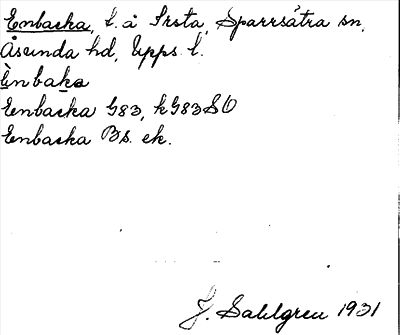 Enbacka, t. å Srsta, Sparrsätra sn,
Åsunda hd, Upps. l.
Ènbaka
Enbacka G83, kG83SO
Enbacka Bs. ek.
J. Sahlgren 1931